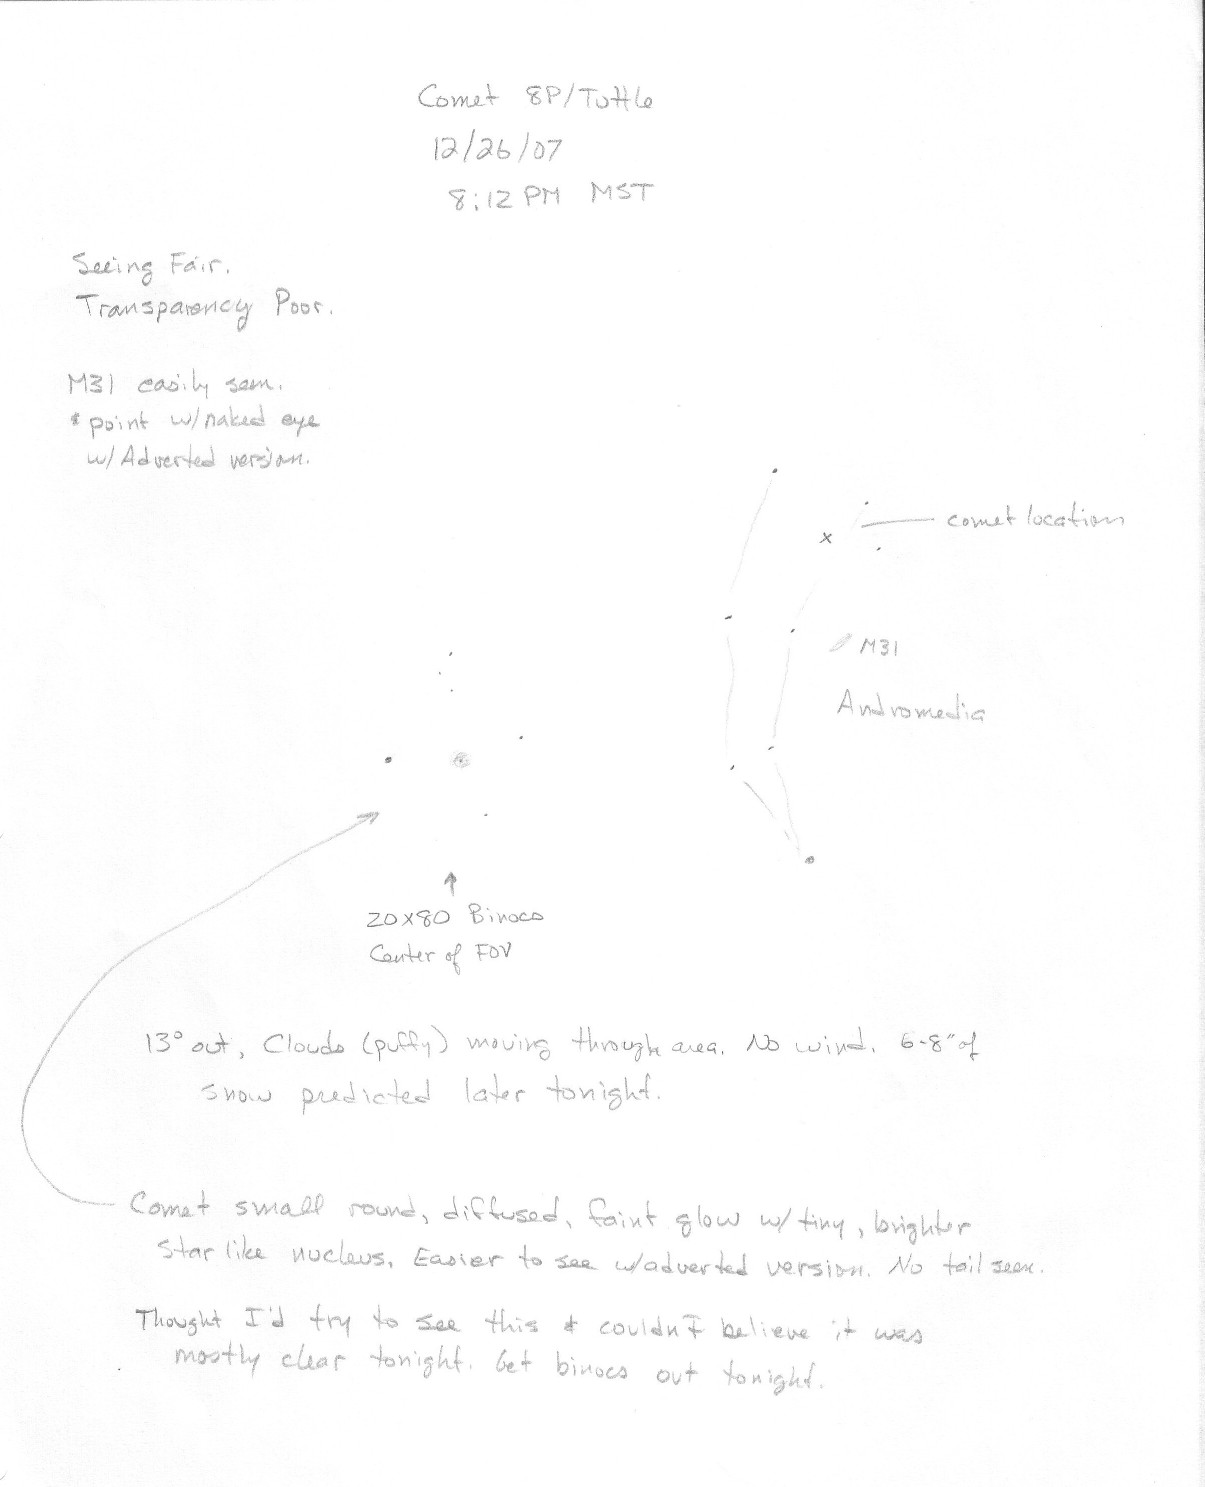 Comet 8P/Tuttle
12/26/07
8:12 PM MST
Seeing Fair.
Transparency Poor.
M31 easily seen.
& point w/naked eye
w/ Adverted version.
x
comet location
M31
Andromedia
20x80 Binocs
Center of FOV
13° out, Clouds (puffy) moving through area. No wind. 6-8" of
snow predicted later tonight.
Comet small round, diffused, faint glow w/ tiny, brighter
star like nucleus. Easier to see w/adverted version. No tail seen.
Thought I'd try to see this & couldn't believe it was
mostly clear tonight. Get binocs out tonight.